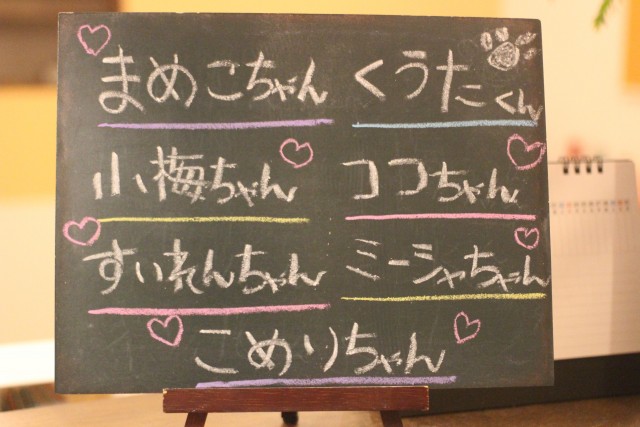 まめこちゃん くうたくん
小梅ちゃん ココちゃん
すいれんちゃん ミーシャちゃん
こめりちゃん